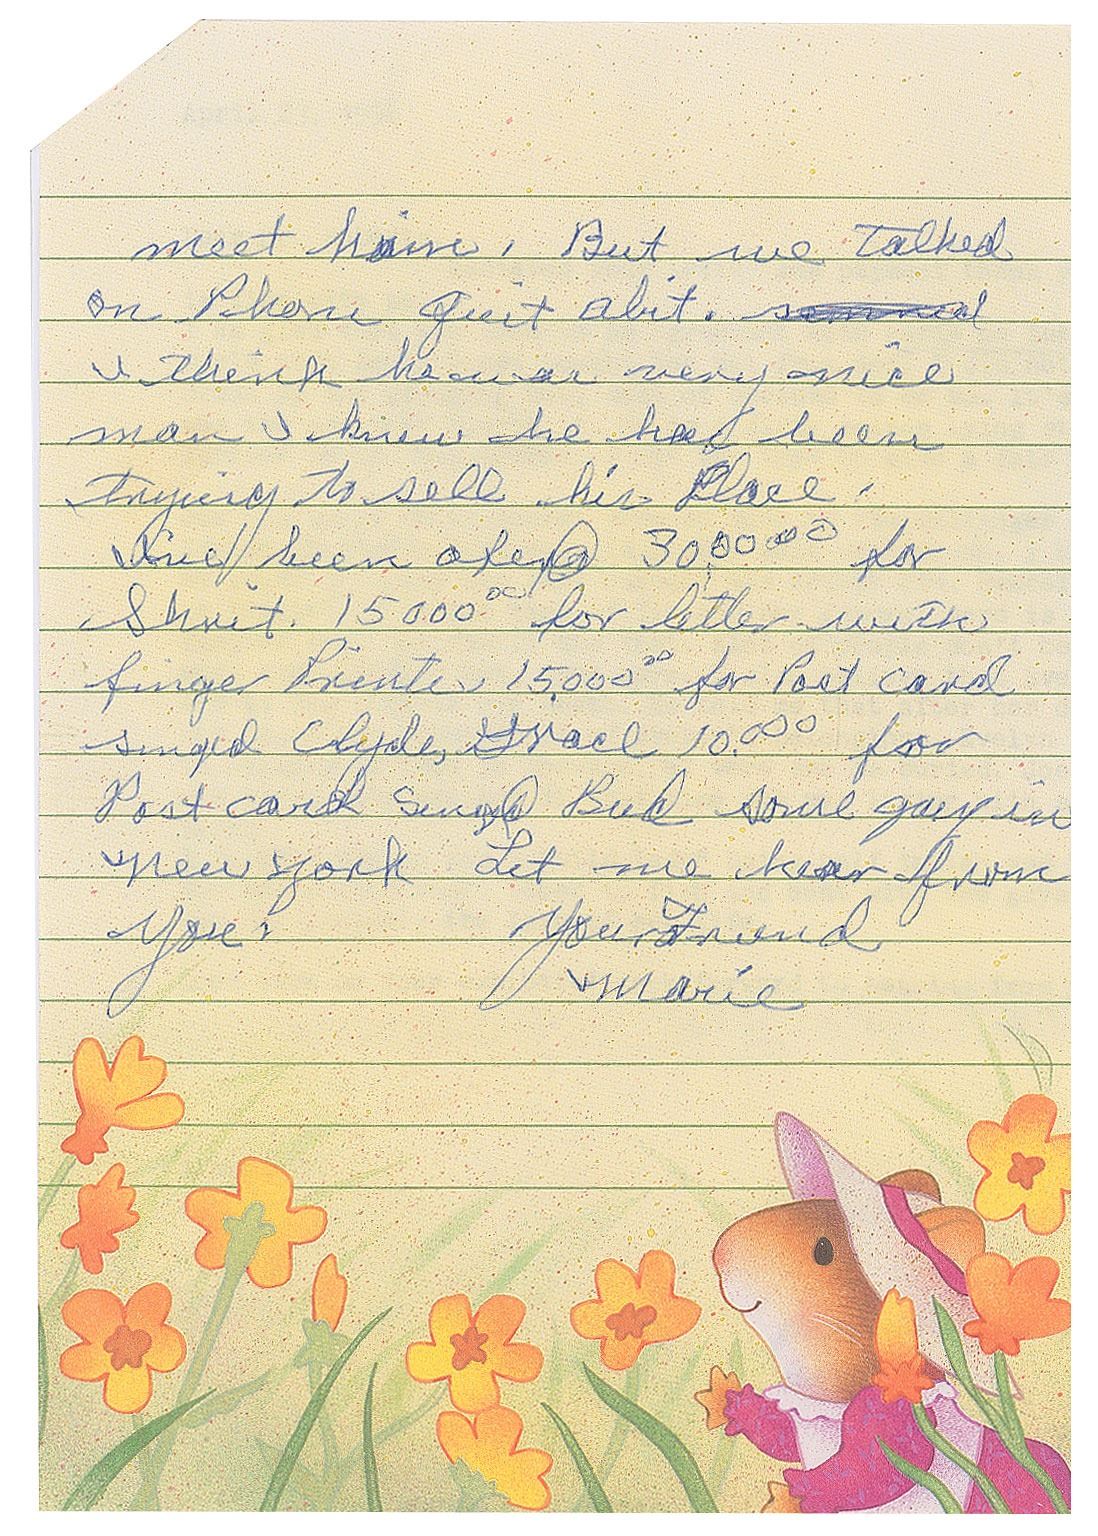 meet him. But we talked
on Phone Quit abit.
I think he was very nice
man I knew he had been
trying to sell his Place.
I've been ofer@ 30,000.00 for
Shirt. 15000.00 for letter with
finger Prints 15,000.00 for Post card
singed Clyde, Grace 10.000 for
Post card Singed Buck some guy in
New York Let me hear from
You. Your Friend
Marie